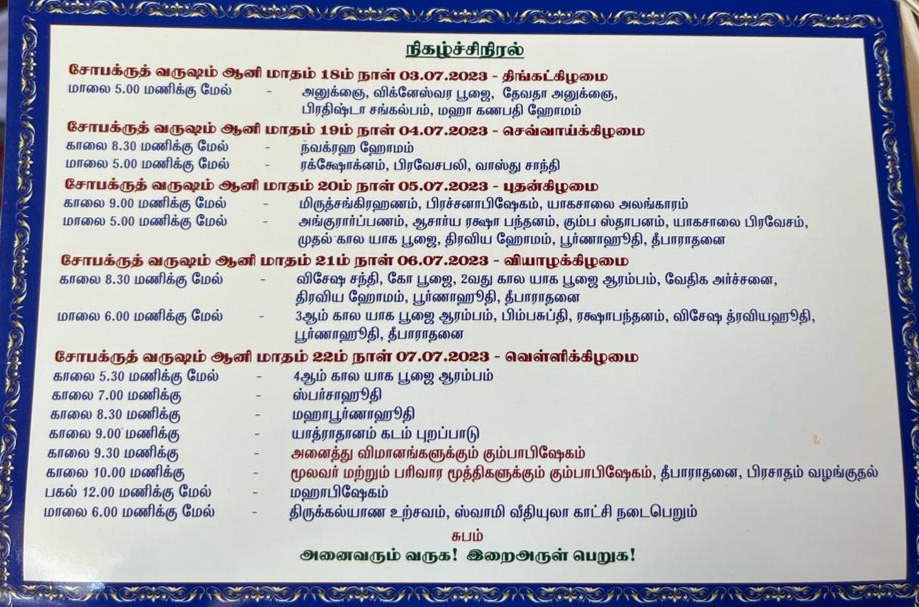 நிகழ்ச்சிநிரல்
சோபக்ருத் வருஷம் ஆனி மாதம் 18ம் நாள் 03.07.2023 - திங்கட்கிழமை
மாலை 5.00 மணிக்கு மேல் - அனுக்ஞை, விக்னேஸ்வர பூஜை, தேவதா அனுக்ஞை,
பிரதிஷ்டா சங்கல்பம், மஹா கணபதி ஹோமம்
சோபக்ருத் வருஷம் ஆனி மாதம் 19ம் நாள் 04.07.2023 - செவ்வாய்க்கிழமை
காலை 8.30 மணிக்கு மேல் - நவக்ரஹ ஹோமம்
மாலை 5.00 மணிக்கு மேல் - ரக்ஷோக்னம், பிரவேசபலி, வாஸ்து சாந்தி
சோபக்ருத் வருஷம் ஆனி மாதம் 20ம் நாள் 05.07.2023 - புதன்கிழமை
காலை 9.00 மணிக்கு மேல் - மிருத்சங்கிரஹணம், பிரச்சனாபிஷேகம், யாகசாலை அலங்காரம்
மாலை 5.00 மணிக்கு மேல் - அங்குரார்ப்பணம், ஆசார்ய ரக்ஷா பந்தனம், கும்ப ஸ்தாபனம், யாகசாலை பிரவேசம்,
முதல் கால யாக பூஜை, திரவிய ஹோமம், பூர்ணாஹூதி, தீபாராதனை
சோபக்ருத் வருஷம் ஆனி மாதம் 21ம் நாள் 06.07.2023 - வியாழக்கிழமை
காலை 8.30 மணிக்கு மேல் - விசேஷ சந்தி, கோ பூஜை, 2வது கால யாக பூஜை ஆரம்பம், வேதிக அர்ச்சனை,
திரவிய ஹோமம், பூர்ணாஹூதி, தீபாராதனை
மாலை 6.00 மணிக்கு மேல் - 3ஆம் கால யாக பூஜை ஆரம்பம், பிம்பசுப்தி, ரக்ஷாபந்தனம், விசேஷ த்ரவியஹூதி,
பூர்ணாஹூதி, தீபாராதனை
சோபக்ருத் வருஷம் ஆனி மாதம் 22ம் நாள் 07.07.2023 - வெள்ளிக்கிழமை
காலை 5.30 மணிக்கு மேல் - 4ஆம் கால யாக பூஜை ஆரம்பம்
காலை 7.00 மணிக்கு - ஸ்பர்சாஹூதி
காலை 8.30 மணிக்கு - மஹாபூர்ணாஹூதி
காலை 9.00 மணிக்கு - யாத்ராதானம் கடம் புறப்பாடு
காலை 9.30 மணிக்கு - அனைத்து விமானங்களுக்கும் கும்பாபிஷேகம்
காலை 10.00 மணிக்கு - மூலவர் மற்றும் பரிவார மூத்திகளுக்கும் கும்பாபிஷேகம், தீபாராதனை, பிரசாதம் வழங்குதல்
பகல் 12.00 மணிக்கு மேல் - மஹாபிஷேகம்
மாலை 6.00 மணிக்கு மேல் - திருக்கல்யாண உற்சவம், ஸ்வாமி வீதியுலா காட்சி நடைபெறும்
சுபம்
அனைவரும் வருக! இறைஅருள் பெறுக!